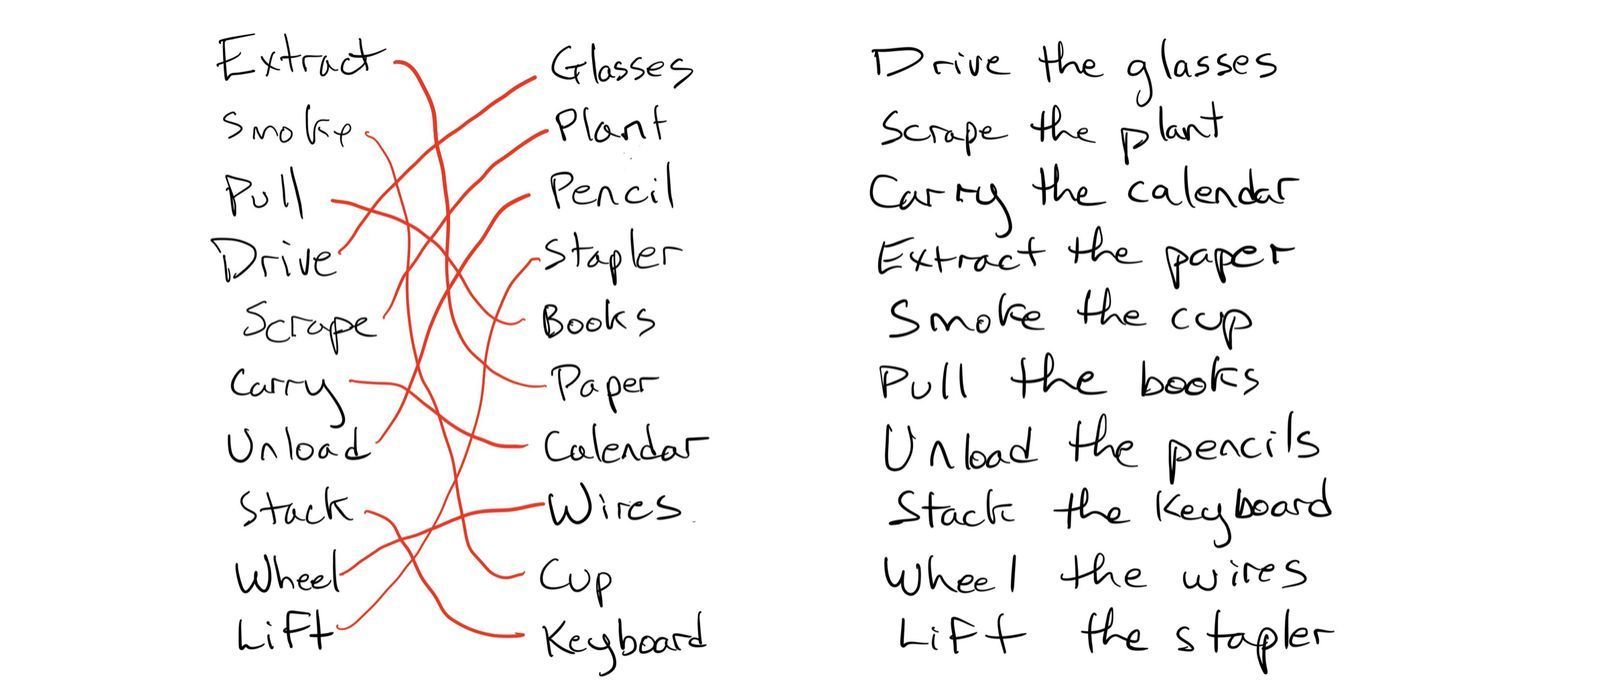 Extract
Smoke
Pull
Drive
Scrape
Carry
Unload
Stack
Wheel
Lift
Glasses
Plant
Pencil
Stapler
Books
Paper
Calendar
Wires
Cup
Keyboard
Drive the glasses
Scrape the plant
Carry the calendar
Extract the paper
Smoke the cup
Pull the books
Unload the pencils
Stack the Keyboard
Wheel the wires
Lift the stapler